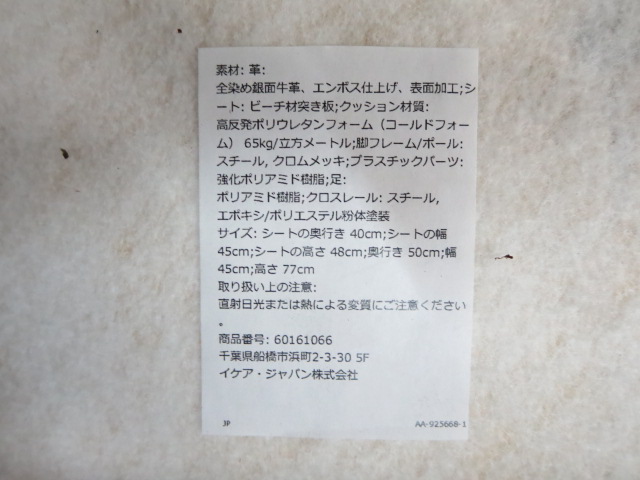 素材: 革:
全染め銀面牛革、エンボス仕上げ、表面加工;シ
ート: ビーチ材突き板;クッション材質:
高反発ポリウレタンフォーム（コールドフォー
ム） 65kg/立方メートル;脚フレーム/ポール:
スチール, クロムメッキ;プラスチックパーツ:
強化ポリアミド樹脂;足:
ポリアミド樹脂;クロスレール: スチール,
エポキシ/ポリエステル粉体塗装
サイズ: シートの奥行き 40cm;シートの幅
45cm;シートの高さ 48cm;奥行き 50cm;幅
45cm;高さ 77cm
取り扱い上の注意:
直射日光または熱による変質にご注意ください
。
商品番号: 60161066
千葉県船橋市浜町2-3-30 5F
イケア・ジャパン株式会社
JP
AA-925668-1